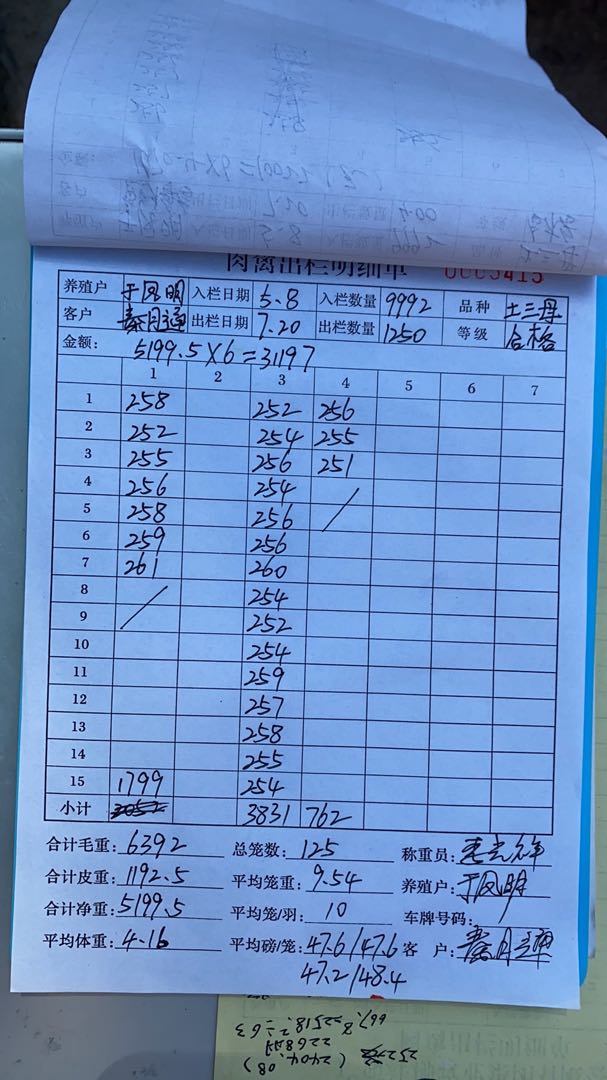 肉禽出栏明细单 0005415
养殖户 于凤明 入栏日期 5.8 入栏数量 9992 品种 土三丹
客户 出栏日期 7.20 出栏数量 1250 等级 合格
金额: 5199.5×6=31197
1 2 3 4 5 6 7
1 258 252 256
2 252 254 255
3 255 256 251
4 256 254
5 258 256 /
6 259 256
7 261 260
8 254
9 / 252
10 254
11 259
12 257
13 258
14 255
15 1799 254
小计 3831 762
合计毛重: 6392 总笼数: 125 称重员:
合计皮重: 1192.5 平均笼重: 9.54 养殖户: 于凤明
合计净重: 5199.5 平均笼/羽: 10 车牌号码: /
平均体重: 4.16 平均磅/笼: 47.6/47.6 客户:
47.2/48.4